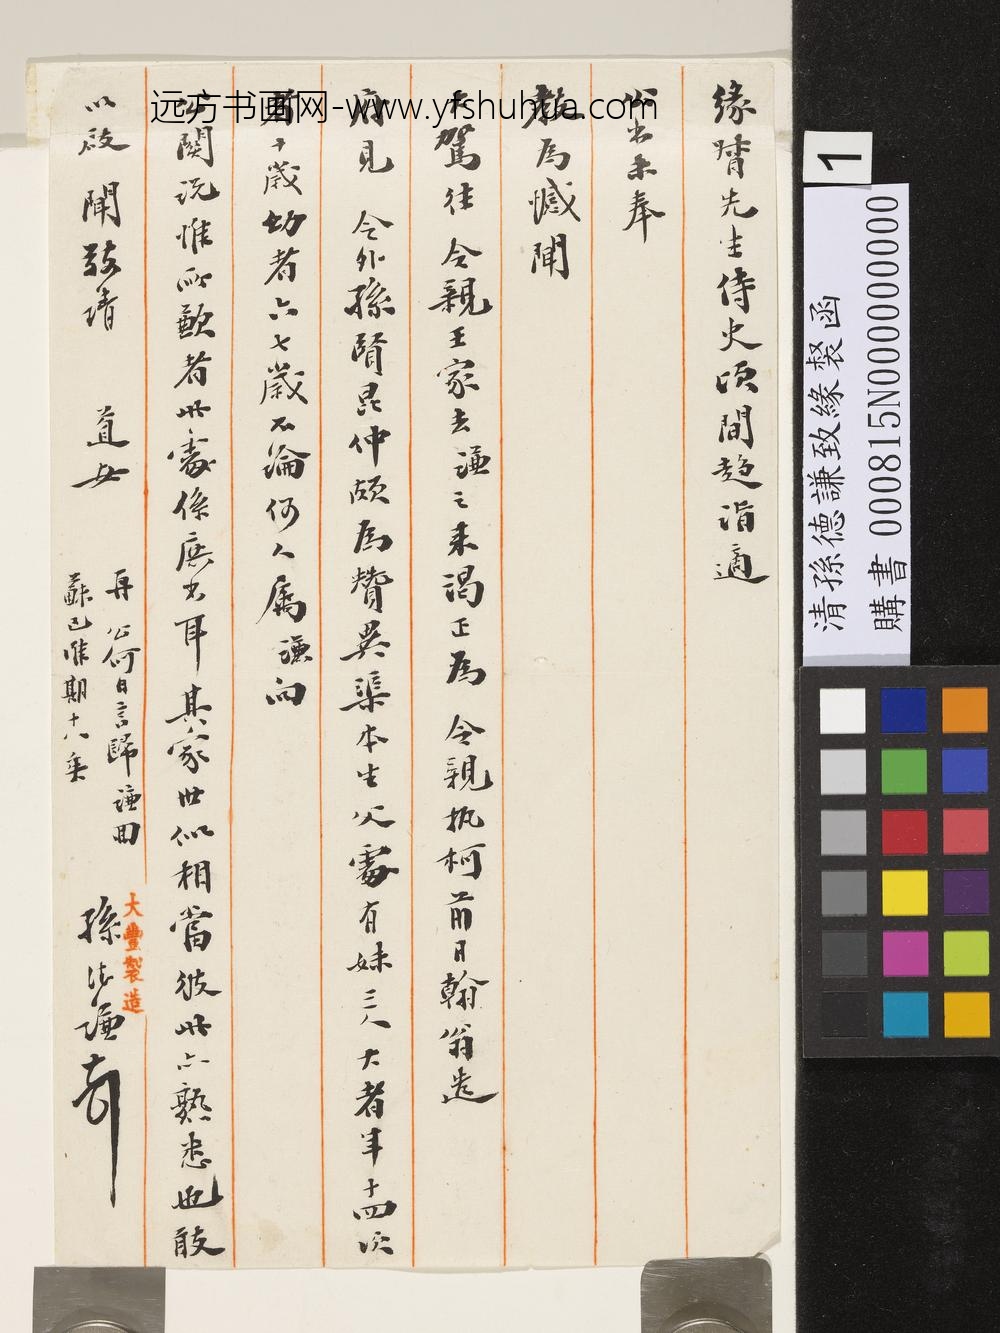 緣督先生侍史頃間趨詣適
公出未奉
教為憾聞
大駕往 令親王家去謙之來謁正為 令親執柯前日翰翁造
府見 令外孫賢昆仲頗為贊異渠本生父處有妹三人大者年十四次
者十歲幼者六七歲不論何人屬謙向
公關說惟所歉者此處係庶出耳其家世似相當彼此亦熟悉也敢
以啟聞敬請 道安
再 公何日言歸謙回
蘇已准期十八矣
孫德謙
大豐製造
远方书画网-www.yfshuhua.com
1
清孫德謙致緣裻函
購書 000815N000000000